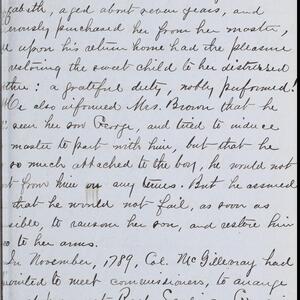 gabeth, aged about seven years, and
erously purchased her from her master,
d upon his return home had the pleasure
restoring the sweet child to her distressed
other: a grateful duty, nobly performed!
He also informed Mrs. Brown that he
seen her son George, and tried to induce
master to part with him, but that he
so much attached to the boy, he would not
t from him on any terms. But he assured
that he would not fail, as soon as
sible, to ransom her son, and restore him
to her arms.
In November, 1789, Col. McGillivray had
to meet commissioners, to arrange